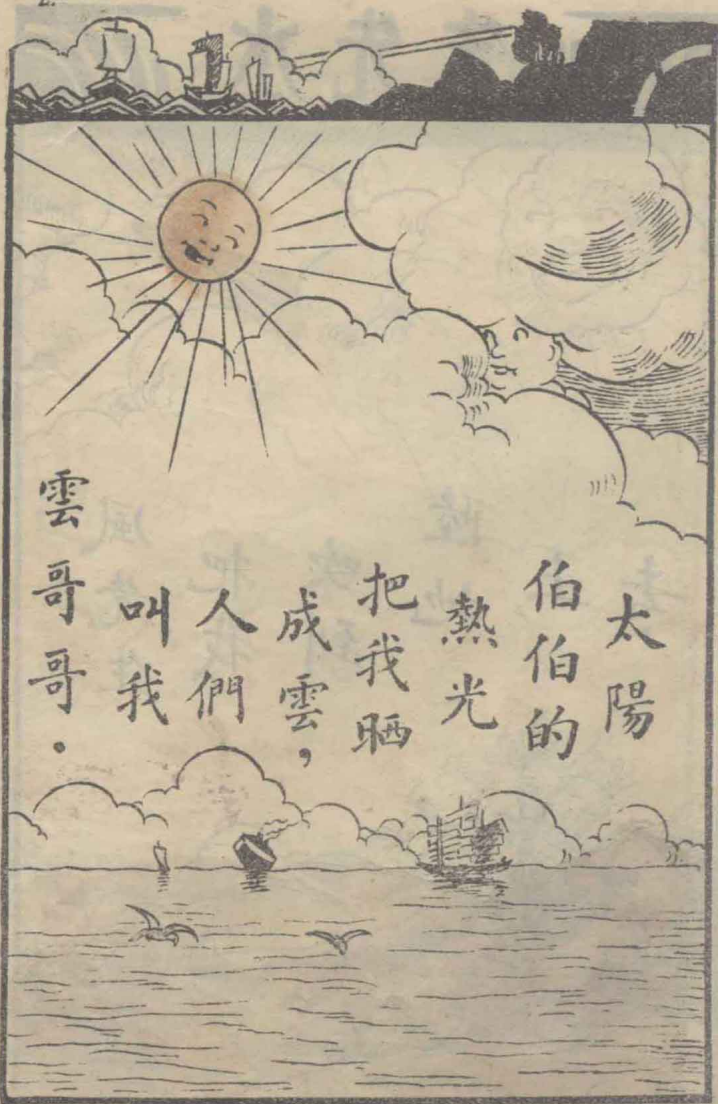 2.
太陽
伯伯的
熱光
把我晒
成雲，
人們
叫我
雲哥哥．